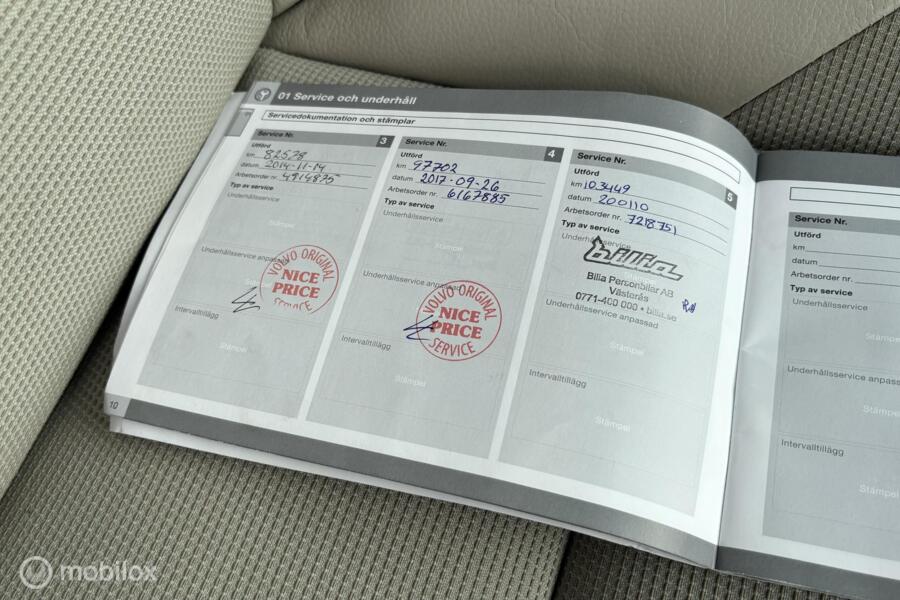 01 Service och underhåll
Servicedokumentation och stämplar
Service Nr. 3
Utförd
km 82578
datum 2014-11-14
Arbetsorder nr. 4914875
Typ av service
Underhållsservice
Stämpel
Underhållsservice anpassad
VOLVO ORIGINAL
NICE
PRICE
SERVICE
Intervalltillägg
Stämpel
10
Service Nr. 4
Utförd
km 97702
datum 2017-09-26
Arbetsorder nr. 6167885
Typ av service
Underhållsservice
Stämpel
Underhållsservice anpassad
VOLVO ORIGINAL
NICE
PRICE
SERVICE
Intervalltillägg
Stämpel
Service Nr. 5
Utförd
km 103449
datum 200110
Arbetsorder nr. 7218751
Typ av service
Underhållsservice
bilia
Bilia Personbilar AB
Västerås
0771-400 000 • bilia.se
Underhållsservice anpassad
Stämpel
Intervalltillägg
Stämpel
Service Nr.
Utförd
km
datum
Arbetsorder nr.
Typ av service
Underhållsservice
Stämpel
Underhållsservice anpassa
Stämpel
Intervalltillägg
Stämpel
mobilox